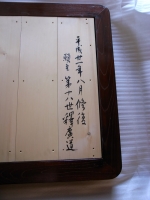 平成廿一年八月修復
願主第十八世釋廣道